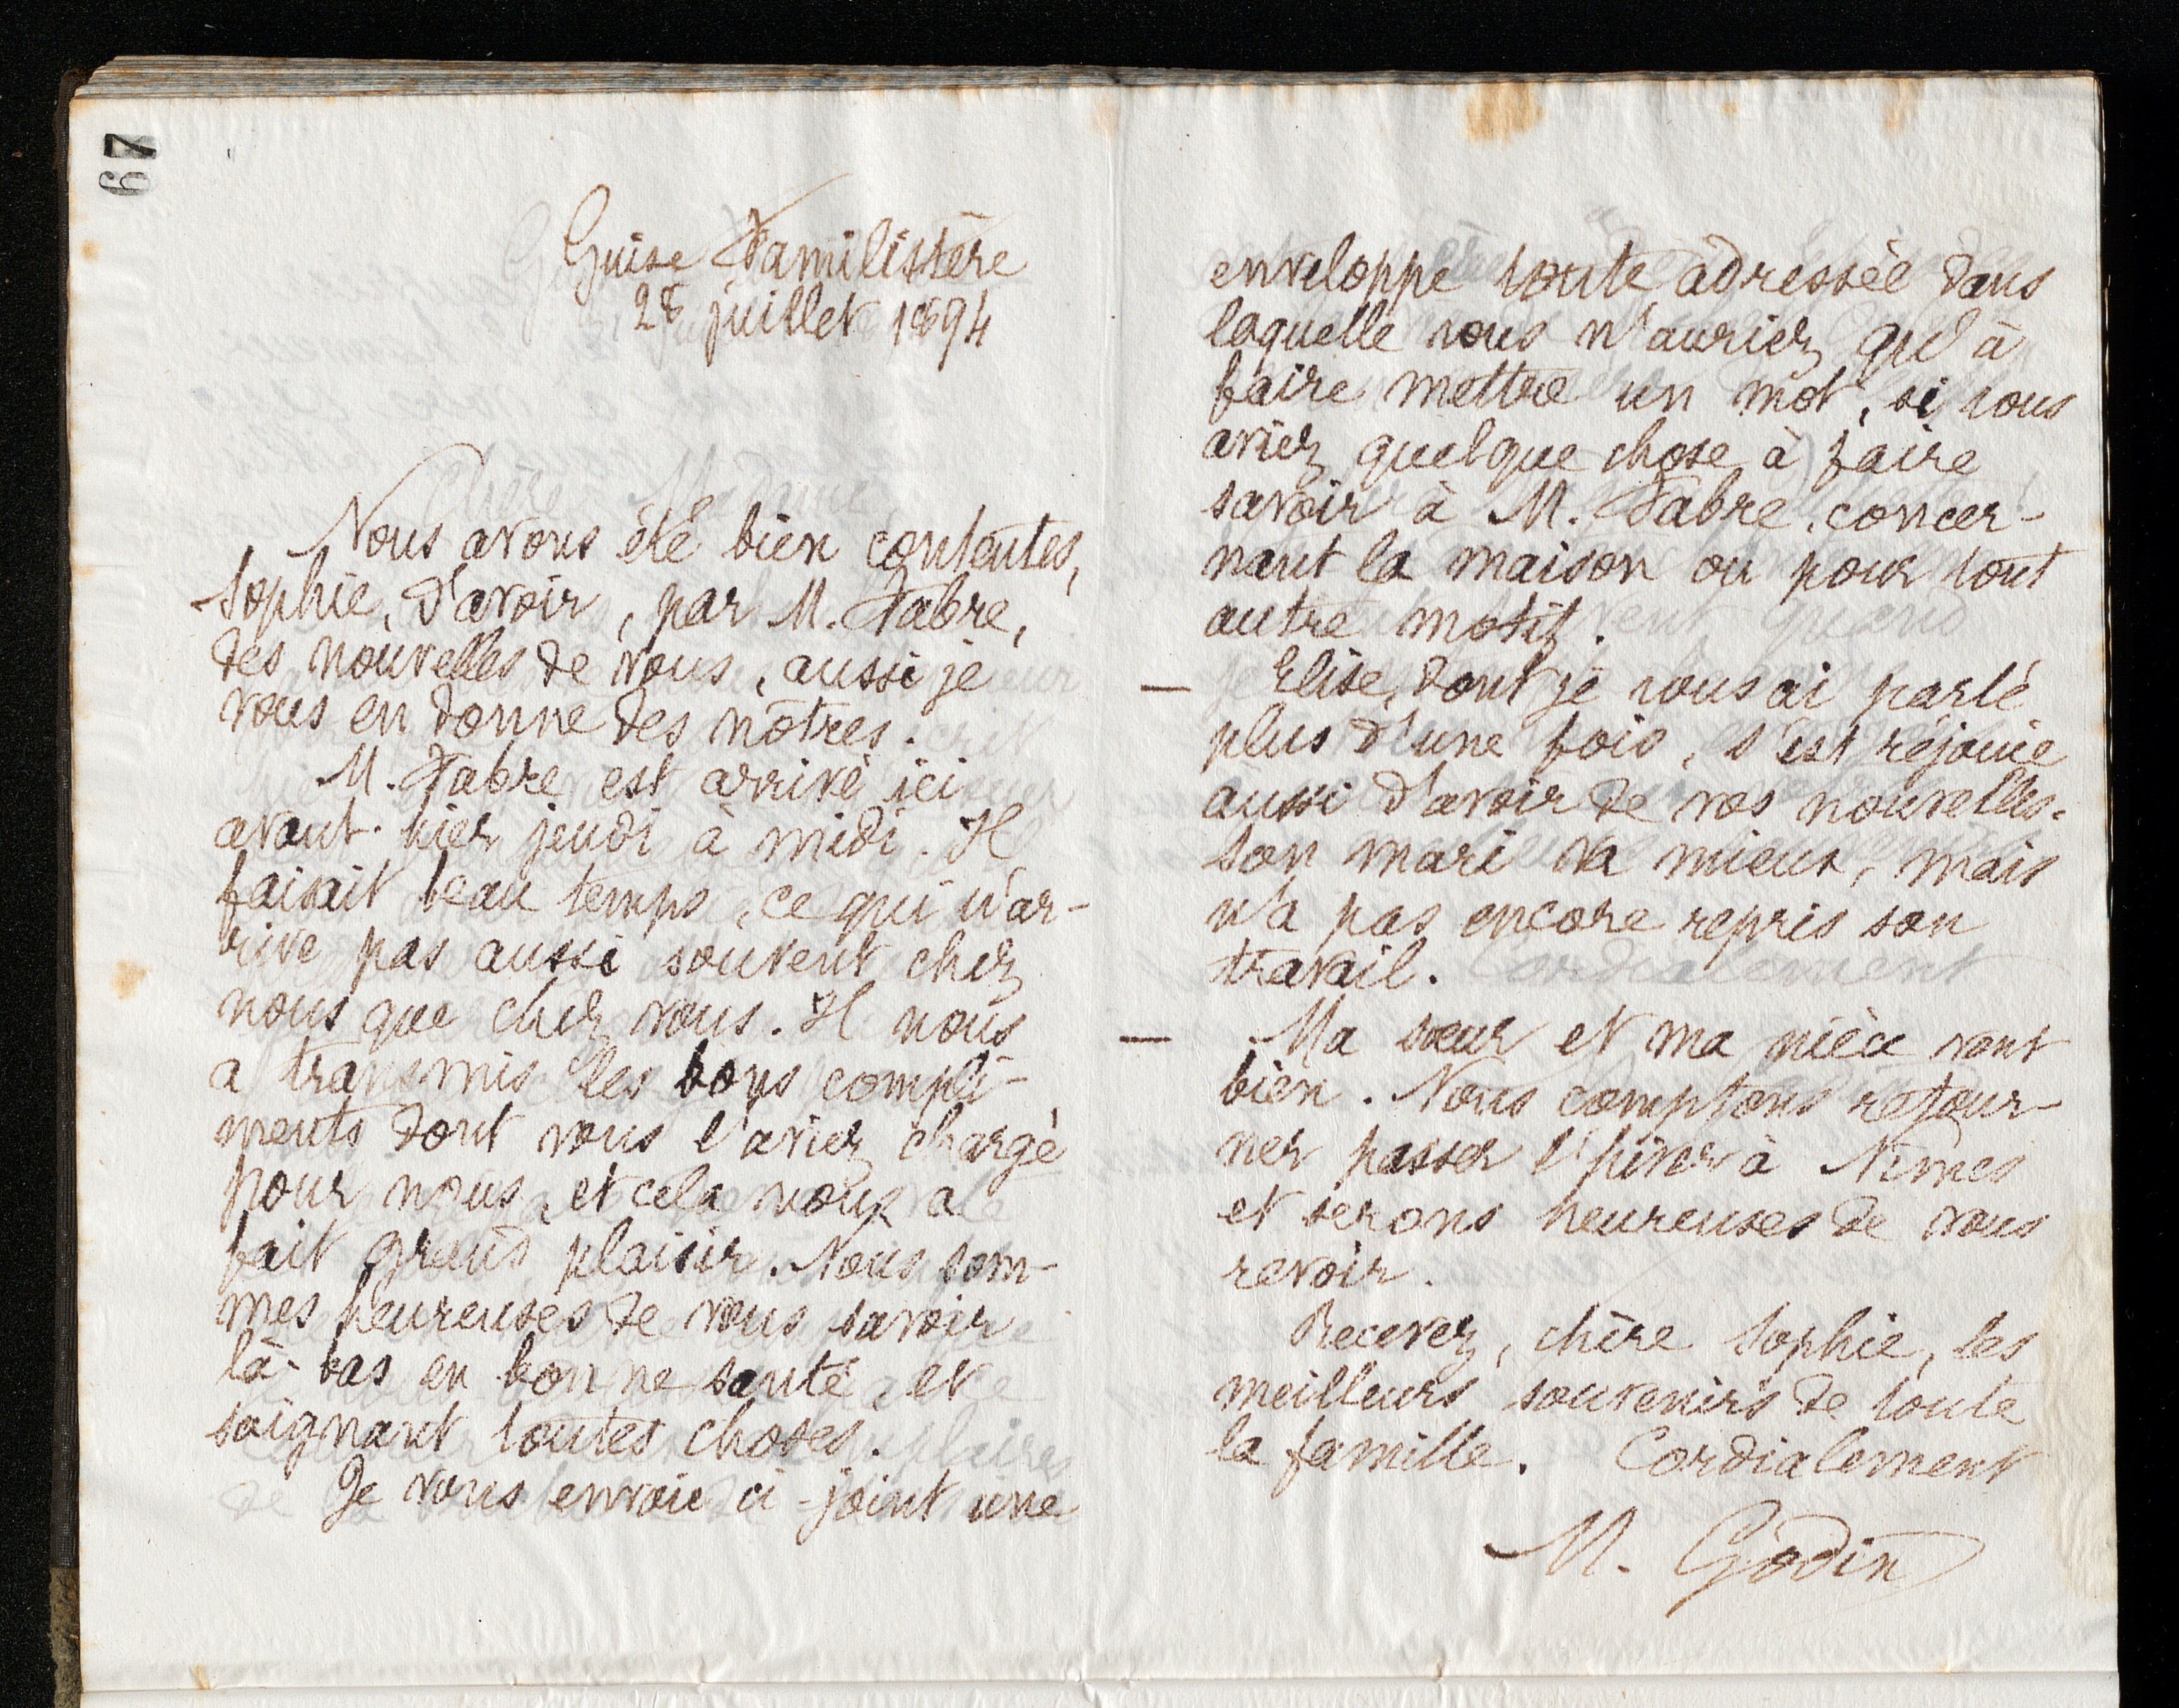 67
Guise Familistère
28 juillet 1894
Nous avons été bien contentes,
Sophie, d'avoir, par M. Fabre,
des nouvelles de vous, aussi je
vous en donne des nôtres.
M. Fabre est arrivé ici
avant-hier jeudi à midi. Il
faisait beau temps, ce qui n'ar-
rive pas aussi souvent chez
nous que chez vous. Il nous
a transmis les bons compli-
ments dont vous l'aviez chargé
pour nous, et cela nous a
fait grand plaisir. Nous som-
mes heureuses de vous savoir
là-bas en bonne santé, et
soignant toutes choses.
Je vous envoie ci-joint une
enveloppe toute adressée dans
laquelle vous n'auriez qu'à
faire mettre un mot, si vous
aviez quelque chose à faire
savoir à M. Fabre, concer-
nant la maison ou pour tout
autre motif.
— Elise, dont je vous ai parlé
plus d'une fois, s'est réjouie
aussi d'avoir de vos nouvelles.
Son mari va mieux, mais
n'a pas encore repris son
travail.
— Ma sœur et ma nièce vont
bien. Nous comptons retour-
ner passer l'hiver à Nîmes
et serons heureuses de vous
revoir.
Recevez, chère Sophie, les
meilleurs souvenirs de toute
la famille. Cordialement
M. Godin